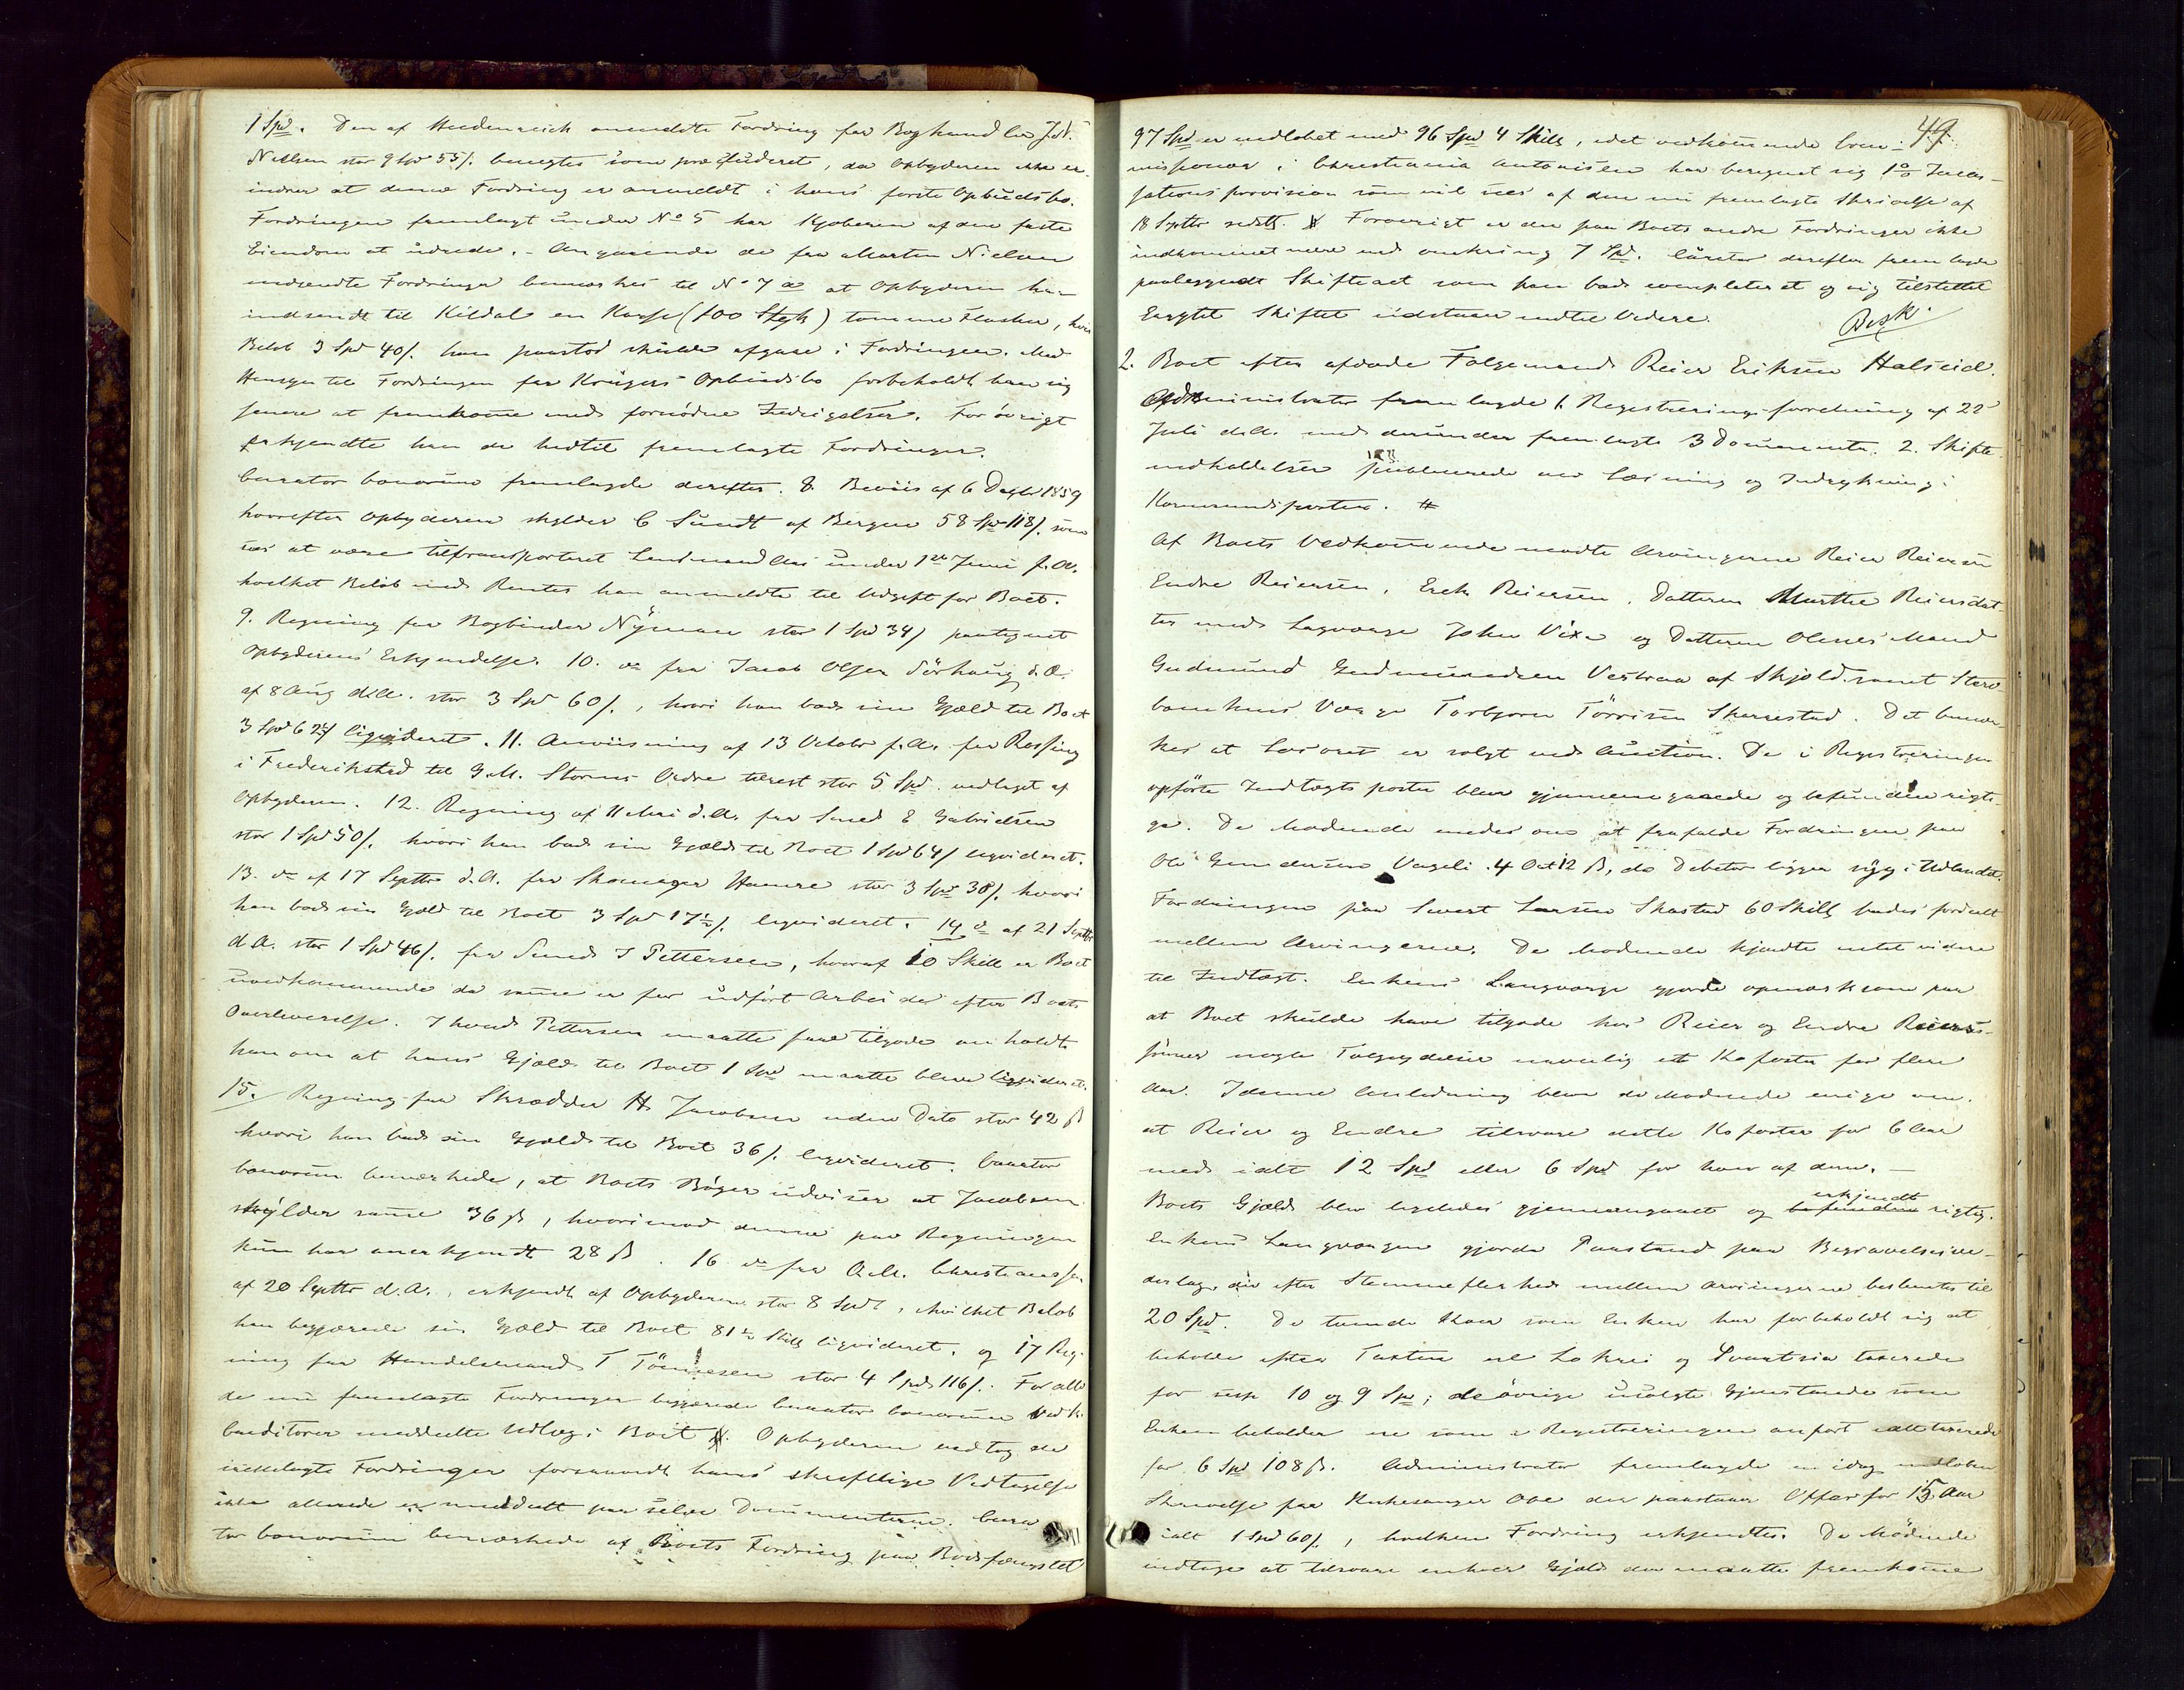 1 Spd. Den af Heidenreich anmeldte Fordring fra Boghandler J. N.
Nielsen stor 9 Spd 55 ß. benegtes som præcluderet, da Opbyderen ikke er-
indrer at denne Fordring er anmeldt i hans første Opbudsbo.
Fordringen fremlagt under No 5 har Kjøberen af den faste
Eiendom at udrede. - Angaaende de fra Morten Nielsen
indsendte Fordringer bemærkes til No 7 a at Opbyderen har
indsendt til Kildal en Kasse (100 Styk) tomme Flasker, hvis
Beløb 3 Spd 40 ß. han paastod skulde afgaae i Fordringen. Med
Hensyn til Fordringen fra Krügers Opbudsbo forbeholdt han sig
senere at fremkomme med fornødne Indsigelser. For øvrigt
erkjendte han de hidtil fremlagte Fordringer.
Curator bonorum fremlagde derefter. 8. Beviis af 6 Decbr 1859
hvorefter Opbyderen skylder C Sundt af Bergen 58 Spd 118 ß. som
sees at være tiltransporteret Lensmand Aas under 1ste Juni f. A.
hvilket Beløb med Renter han anmeldte til Udgift for Boet.
9. Regning fra Bogbinder Nyman stor 1 Spd 34 ß paategnet
Opbyderens Erkjendelse. 10. do fra Jacob Olsen Sørhaug d. A.
af 8 Aug d.A. stor 3 Spd 60 ß., hvori han bad sin Gjæld til Boet
3 Spd 6 24 ß ligvideret. 11. Anviisning af 13 October f. A. fra Rossing
i Frederikstad til G. M. Storms Ordre tilrest stor 5 Spd. vedtaget af
Opbyderen. 12. Regning af 11 Mai d. A. fra Smed E Gabrielsen
stor 1 Spd 50 ß. hvori han bad sin Gjæld til Boet 1 Spd 64 ß ligvideret.
13. do af 17 Septbr d. A. fra Skomager Hamre stor 3 Spd 38 ß. hvori
han bad sin Gjæld til Boet 3 Spd 17½ ß. ligvideret. 14 do af 21 Septbr
d A. stor 1 Spd 46 ß. fra Smed J Pettersen, hvoraf 10 Skill er Boet
uvedkommende da samme er for udført Arbeider efter Boets
Overleverelse. I hvad Pettersen maatte faae tilgode anholdt
han om at hans Gjæld til Boet 1 Spd maatte blive ligvideret.
15. Regning fra Skrædder H. Jacobsen uden Dato stor 42 ß
hvori han bad sin Gjæld til Boet 36 ß. ligvideret. Curator
bonorum bemærkede, at Boets Bøger udviser at Jacobsen
skylder samme 36 ß, hvorimod denne paa Regningen
kun har anerkjendt 28 ß. 16 do fra A. M. Christianssen
af 20 Septbr d. A., erkjendt af Opbyderen stor 8 Spd, hvilket Beløb
han begjærede sin Gjæld til Boet 81½ Skill ligvideret. og 17 Reg-
ning fra Handelsmand T Tönnesen stor 4 Spd 116 ß. For alle
de nu fremlagte Fordringer begjærede Curator bonorum Vedk.
Creditorer meddeelte Udlæg i Boet. Opbyderen vedtog de
fremlagte Fordringer forsaavidt hans skriftlige Vedtagelse
ikke allerede er meddeelt paa selve Documenterne. Cura-
tor bonorum bemærkede af Boets Fordring paa Bodsfængslet
49.
97 Spd er indløbet med 96 Spd 4 Skill, idet vedkommende Com-
missionær i Christiania Antonisen har beregnet sig 1% Incas-
sations provision som vil sees af den nu fremlagte Skrivelse af
18 Septbr sidstl. Forøvrigt er der paa Boets andre Fordringer ikke
indkommet mere end omkring 7 Spd. Curator derefter fremlagde
paabegyndt Skifteact som han bad completeret og sig tilstillet
Errgtil Skiftet udstaaer indtil Videre.
Besk.
2. Boet efter afdøde Følgemand Reier Eriksen Halseid.
Administrator fremlagde 1. Registreringsforretning af 22
Juli d.A. med derunder fremlagte 3 Documenter. 2. Skifte-
indkaldelser publicerede ved Læsning og Indrykning i
Karmsundsposten.
Af Boets Vedkommende mødte Arvingerne Reier Reiersen
Endre Reiersen, Erik Reiersen, Datteren Marthe Reiersdat-
ter med Lagværge John Vixe og Datteren Olenes Mand
Gudmund Gudmundsen Vestraa af Skjold samt Sterv-
boenkens Værge Torbjørn Tørrisen Skeisestad. Det bemær-
kes at Løsøret er solgt ved Auction. De i Registreringen
opførte Indtægts poster blev gjennemgaaede og befundne rigti-
ge. De Mødende enedes om at frafalde Fordringen paa
Ole Gundersen Vageli 4 Ort 12 ß, da Debitor ligger syg i Udlandet.
Fordringen paa Sivert Larsen Skastad 60 Skill bades fordeelt
mellem Arvingerne. De Mødende kjendte intet videre
til Indtægt. Enkens Laugværge gjorde opmærksom paa
at Boet skulde have tilgode hos Reier og Endre Reiers-
sønner nogle Følgeydelser navnlig et Kofoster for flere
Aar. I denne Anledning blev de Mødende enige om
at Reier og Endre tilsvare dette Kofoster for 6 Aar
med ialt 12 Spd eller 6 Spd for hver af dem. -
Boets Gjæld blev ligeledes gjennemgaaet og befunden erkjendt rigtig.
Enkens Laugværgen gjorde Paastand paa Begravelsesve-
derlag, der efter Stemmeflerhed mellem Arvingerne bestemtes til
20 Spd. De tvende Kjøer som Enken har forbeholdt sig at
beholde efter Taxten ere Lokrei og Svartsia taxerede
for resp 10 og 9 Spd; de øvrige usolgte Gjenstande som
Enken beholder ere som i Registreringen anført ialt taxerede
for 6 Spd 108 ß. Administrator fremlagde en idag indløben
Skrivelse fra Kirkesanger Ove der paastaaer Offer for 15 Aar
ialt 1 Spd 60 ß., hvilken Fordring erkjendtes. De Mødende
indtoge at tilsvare enhver Gjæld der maatte fremkomme